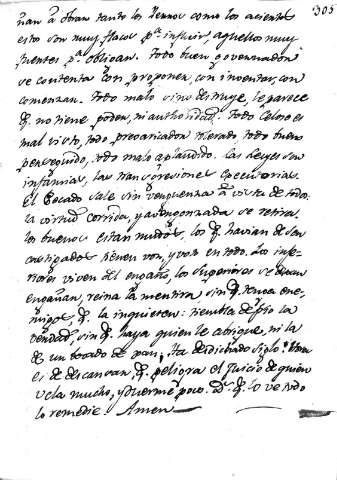 305
ñan à Juan tanto los Yernos como los
esto son muy flacos pª influir, aquellos muy
fuentes pª obligan. Todo buen governador
se contenta con proponen, con inventar, con
comenzan. Todo malo sino destruye, le parece
q. no tiene poden, ni authoridad. Todo es
mal visto, todo prevaricadon tolerado todo bueno
penseguido, todo malo aplaudido. Las Leyes son
infamias, las transgresiones
El Pecado sale sin venguenza à vista de todos,
la virtud corrida, y avengonzada se retira.
los buenos estan mudos, los q. havian de sen
castigados tienen voz, y voto en todo. Los infe-
riores viven del engaño, los Superiores se
engañan, reina la mentira, sin q. tenga ene-
migos q. la inquieten: tiembla de frio la
vendad, sin q. haya quien le abrigue, ni la
dè un bocado de pan, Ha desdichado siglo! Hora
es de descansan, q. peligra el juicio de quien
vela mucho, y duerme poco. Ds. q. lo ve todo
lo remedie Amen